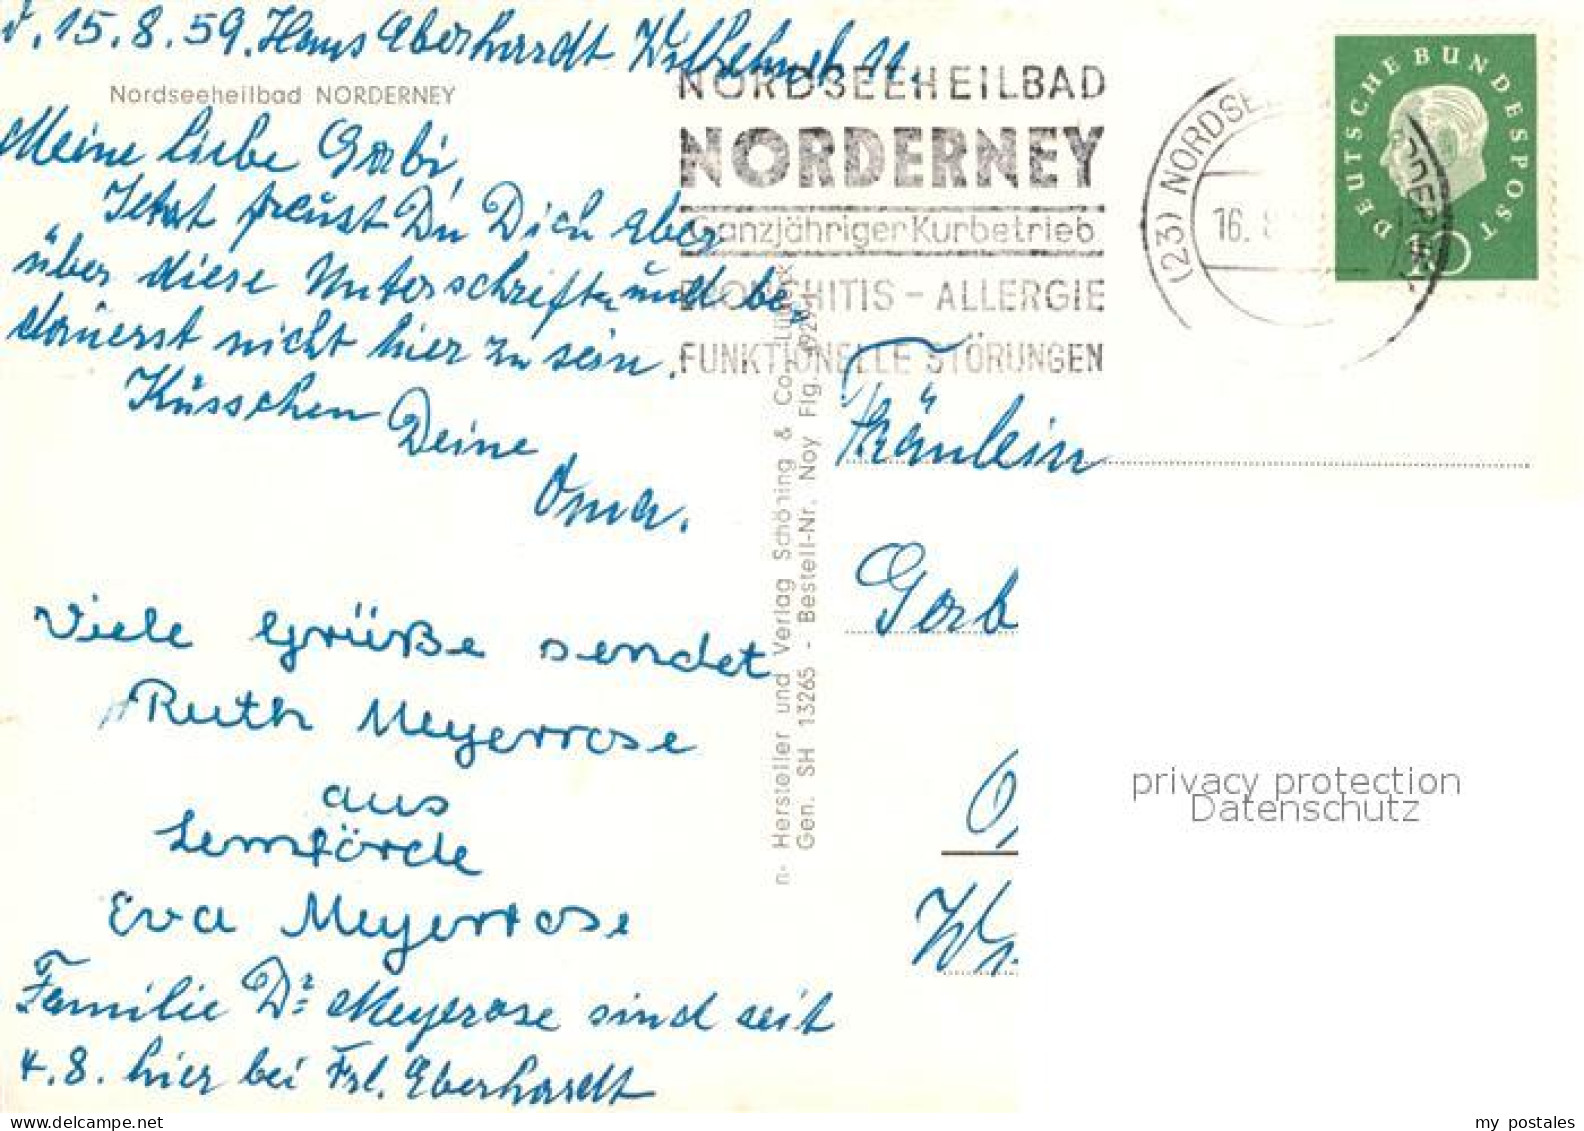 d. 15.8.59. Haus Eberhardt Wilhelmst 11.
Nordseeheilbad NORDERNEY
Meine liebe Gabi,
Jetzt freust Du Dich aber
über diese Unterschriften und be-
dauerst nicht hier zu sein.
Küsschen Deine
Oma.
Viele Grüße sendet
Ruth Meyerrose
aus
Lemförde
Eva Meyerrose
Familie Dr. Meyerose sind seit
4.8. hier bei Frl. Eberhardt
NORDSEEHEILBAD
NORDERNEY
Ganzjähriger Kurbetrieb
BRONCHITIS - ALLERGIE
FUNKTIONELLE STÖRUNGEN
(23) NORDSE
16. 8
DEUTSCHE BUNDESPOST
n- Hersteller und Verlag Schöning & Co., Lübeck
Gen. SH 13265 - Bestell-Nr. Noy Flg.
Fräulein
Gab
privacy protection
Datenschutz
my postales